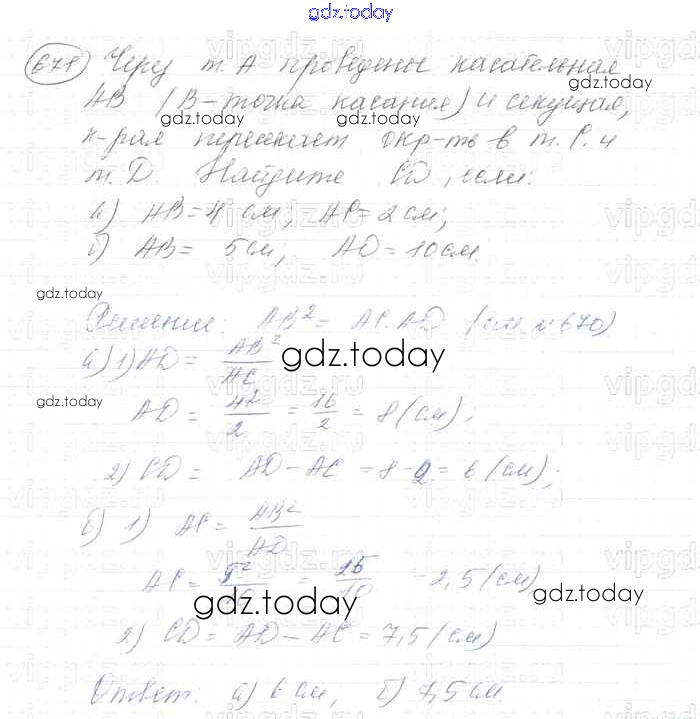 gdz.today
671 Через т. А проведены касательная
АВ (В-точка касания) и секущая,
gdz.today gdz.today
к-рая пересекает окр-ть в т. С и
т. D. Найдите CD, если:
а) АВ=4 см; АС=2см;
б) АВ= 5см; AD=10см.
gdz.today
Решение: АВ² = АС·AD (см. №670)
а) 1) AD = АВ²/АС
gdz.today
gdz.today
AD = 4²/2 = 16/2 = 8 (см);
2) CD = AD-AC = 8-2 = 6 (см);
б) 1) АС = АВ²/AD
АС = 5²/10 = 25/10 = 2,5 (см)
gdz.today gdz.today
2) CD = AD-AC = 7,5 (см)
Ответ: а) 6 см, б) 7,5 см.